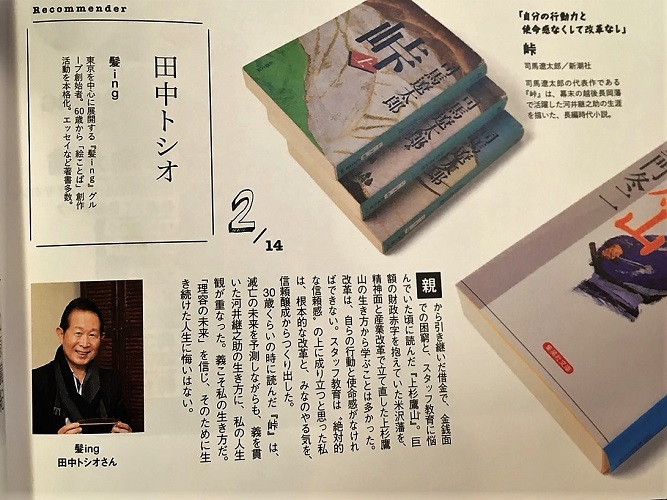 Recommender
田中トシオ
髪ing
東京を中心に展開する『髪ing』グル
ープ創始者。60歳から「絵ことば」創作
活動を本格化。エッセイなど著書多数。
2/14
峠
上
司馬遼太郎
司馬遼太郎
司馬遼太郎
「自分の行動力と
使命感なくして改革なし」
峠
司馬遼太郎/新潮社
司馬遼太郎の代表作である
『峠』は、幕末の越後長岡藩
で活躍した河井継之助の生涯
を描いた、長編時代小説。
門冬二
親から引き継いだ借金で、金銭面
での困窮と、スタッフ教育に悩
んでいた頃に読んだ『上杉鷹山』。巨
額の財政赤字を抱えていた米沢藩を、
精神面と産業改革で立て直した上杉鷹
山の生き方から学ぶことは多かった。
改革は、自らの行動と使命感がなけれ
ばできない。スタッフ教育は〝絶対的
な信頼感〟の上に成り立つと思った私
は、根本的な改革と、みんなのやる気を、
信頼醸成からつくり出した。
30歳くらいの時に読んだ『峠』は、
滅亡の未来を予測しながらも、義を貫
いた河井継之助の生き方に、私の人生
観が重なった。義こそ私の生き方だ。
「理容の未来」を信じ、そのために生
き続けた人生に悔いはない。
髪ing
田中トシオさん